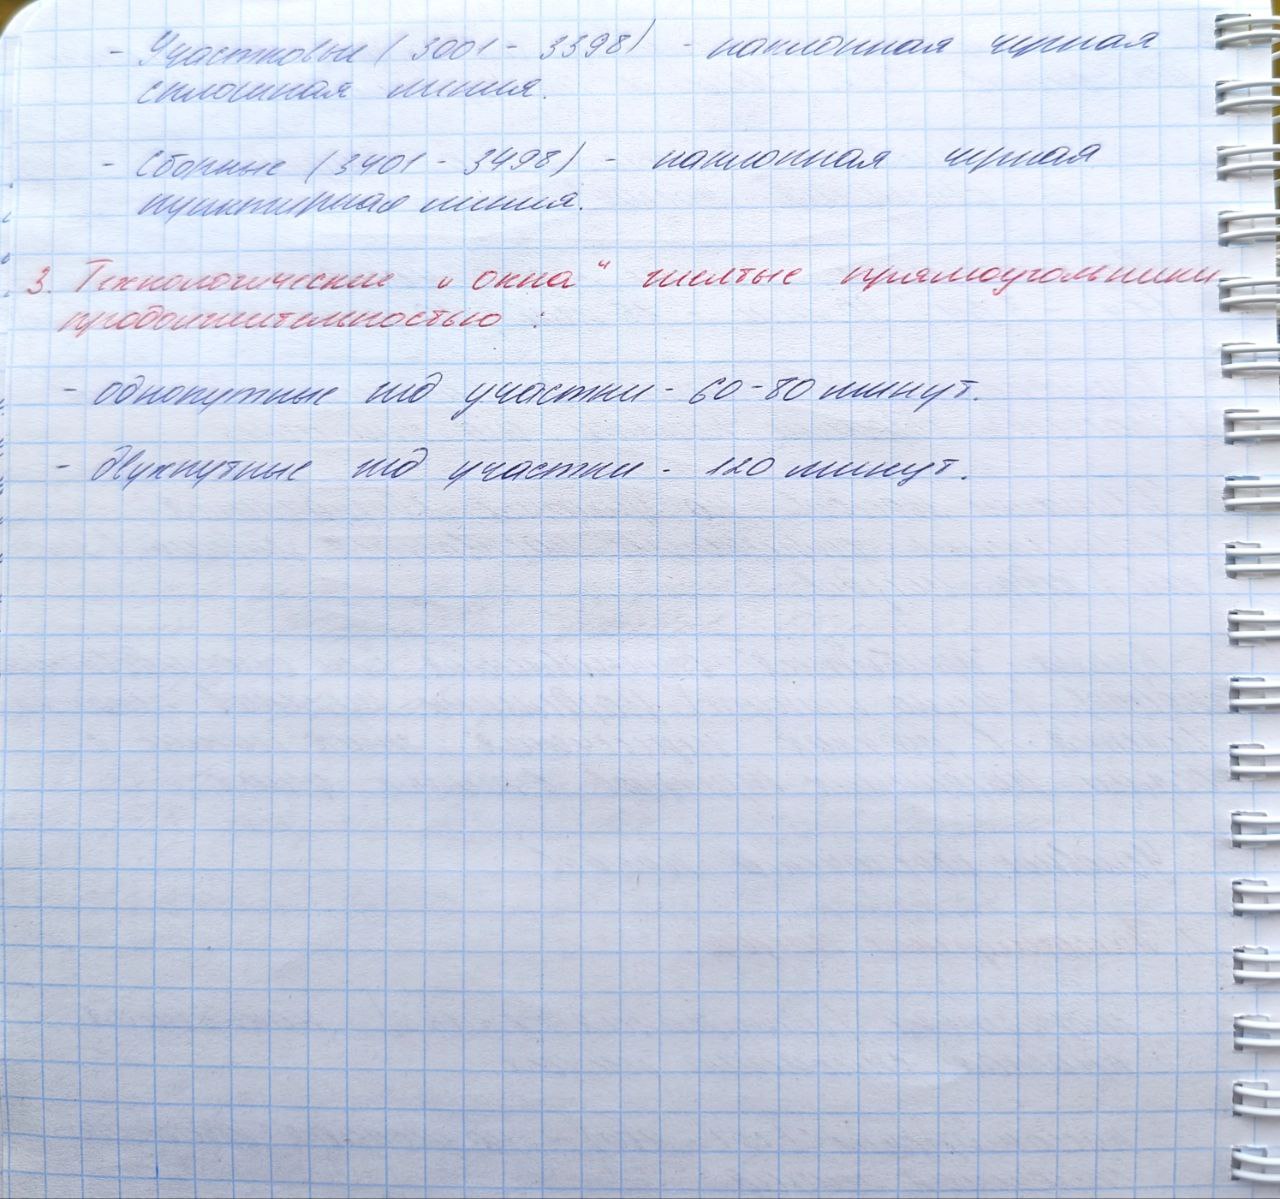 - Участковые (3001 - 3398) - наклонная черная
сплошная линия.
- Сборные (3401 - 3498) - наклонная черная
пунктирная линия.
3. Технологические „окна“ желтые прямоугольники
продолжительностью :
- однопутные жд участки - 60-80 минут.
- двухпутные жд участки - 120 минут.